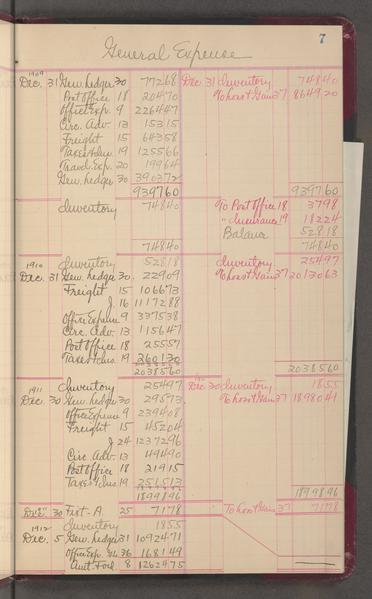 7
General Expense
1909
Dec. 31 Gen. Ledger 30 77268 Dec. 31 Inventory 74840
Post Office 18 20470 To Loss & Gain 37 864920
Office Exp. 9 226447
Circ. Adv. 13 15315
Freight 15 64358
Taxes & Ins. 19 125566
Travel. Exp. 20 19964
Gen. Ledger 30 390372
939760 939760
Inventory 74840 To Post Office 18 3798
" Insurance 19 18224
Balance 52818
74840 74840
1910 Inventory 52818 Inventory 25497
Dec. 31 Gen. Ledger 30 22909 To Loss & Gain 37 2013063
Freight 15 106673
J. 16 1117288
Office Expense 9 337538
Circ. Adv. 13 115647
Post Office 18 25557
Taxes & Ins. 19 260130
2038560 2038560
1911 Inventory 25497 Dec. 30 Inventory 1855
Dec. 30 Gen. Ledger 30 29573 To Loss & Gain 37 1898041
Office Expense 9 239408
Freight 15 45204
J 24 1237296
Circ Adv. 13 49490
Post Office 18 21915
Taxes & Ins 19 251513
1899896 1899896
Dec. 30 25 7178 To Loss & Gain 37 7178
1912 Inventory 1855
Dec. 5 Gen. Ledger 31 1092471
Office Exp. 36 168149
8 1262475